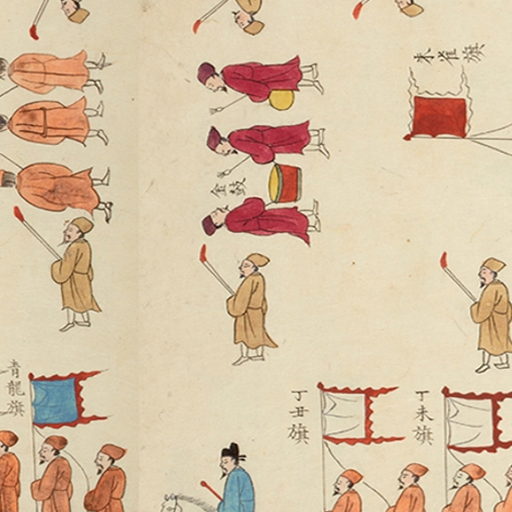 朱雀旗
金鼓
青龍旗
丁丑旗
丁未旗